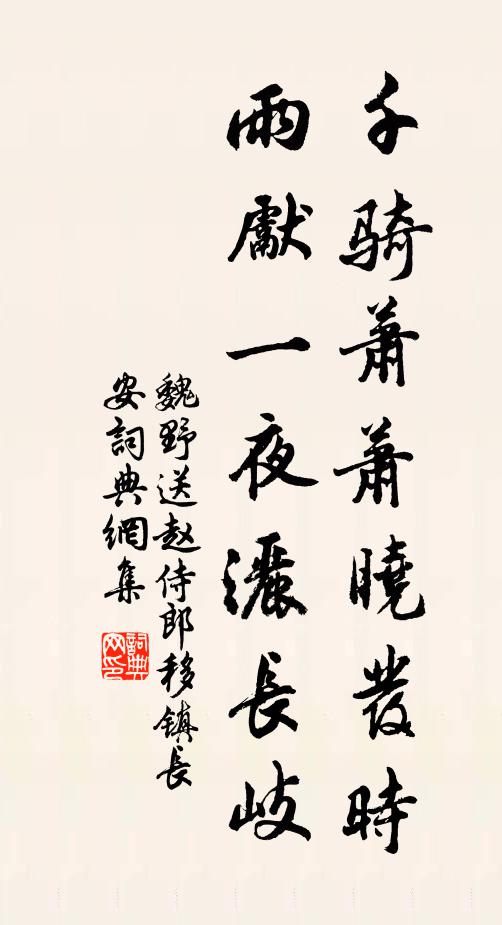 千骑蕭蕭曉發時
雨獻一夜灑長岐
魏野送赵侍郎移鎮長
安詞典網集
詞典
网印